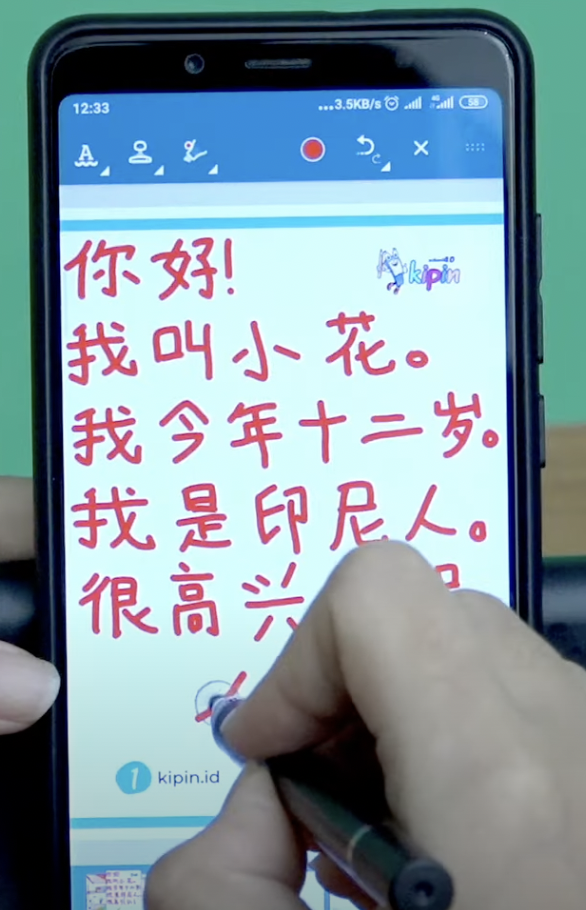 12:33 ...3.5KB/s 4G 58
A
kipin
你好!
我叫小花。
我今年十二岁。
我是印尼人。
很高兴
1 kipin.id